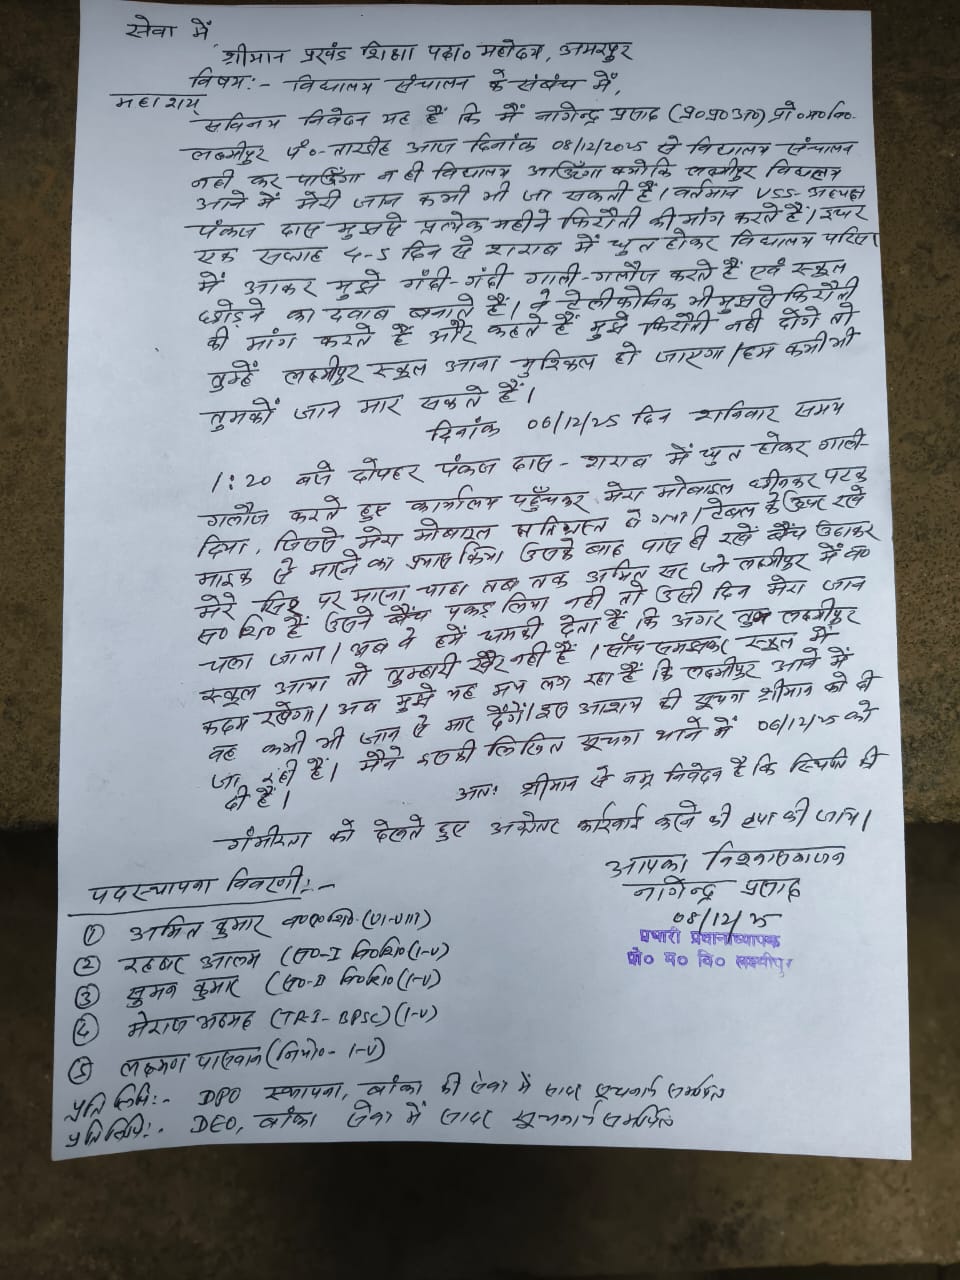 सेवा में,
श्रीमान प्रखंड शिक्षा पदा० महोदय, अमरपुर
विषय:- विद्यालय संचालन के संबंध में,
महाशय
सविनय निवेदन यह है कि मैं नागेन्द्र प्रसाद (प्र०प्र०अ०) प्रो०म०वि०-
लक्ष्मीपुर पं०-तारडीह आज दिनांक 08/12/2025 से विद्यालय संचालन
नही कर पाऊँगा न ही विद्यालय आऊँगा क्योंकि लक्ष्मीपुर विद्यालय
आने में मेरी जान कभी भी जा सकती है। वर्तमान VSS-अध्यक्ष
पंकज दास मुझसे प्रत्येक महीने फिरौती की मांग करते हैं। इधर
एक सप्ताह 4-5 दिन से शराब में धुत होकर विद्यालय परिसर
में आकर मुझे गंदी-गंदी गाली-गलौज करते हैं एवं स्कूल
छोड़ने का दवाब बनाते हैं। वे टेलीफोनिक भी मुझसे फिरौती
की मांग करते हैं और कहते हैं मुझे फिरौती नही दोगे तो
तुम्हें लक्ष्मीपुर स्कूल आना मुश्किल हो जाएगा। हम कभी भी
तुमको जान मार सकते हैं।
दिनांक 06/12/25 दिन शनिवार समय
1:20 बजे दोपहर पंकज दास - शराब में धुत होकर गाली-
गलौज करते हुए कार्यालय पहुँचकर मेरा मोबाइल छीनकर पटक
दिया, जिससे मेरा मोबाइल क्षतिग्रस्त हो गया। टेबल के ऊपर रखे
माइक से मारने का प्रयास किया उसके बाद पास ही रखें बैंच उठाकर
मेरे सिर पर मारना चाहा तब तक अमित सर जो लक्ष्मीपुर में ब०
स० शि० हैं उसने बैंच पकड़ लिया नही तो उसी दिन मेरा जान
चला जाता। अब वे हमें धमकी देता है कि अगर तुम लक्ष्मीपुर
स्कूल आया तो तुम्हारी खैर नही है। सोंच समझकर स्कूल में
कदम रखेगा। अब मुझे यह भय लग रहा है कि लक्ष्मीपुर आने में
वह कभी भी जान से मार देंगें। इस आशय की सूचना श्रीमान को दी
जा रही है। मैंने इसकी लिखित सूचना थाने में 06/12/25 को
दी है।
अतः श्रीमान से नम्र निवेदन है कि स्थिति की
गंभीरता को देखते हुए अग्रेतर कार्रवाई करने की कृपा की जाय।
आपका विश्वासभाजन
नागेन्द्र प्रसाद
08/12/25
प्रभारी प्रधानाध्यापक
प्रो० म० वि० लक्ष्मीपुर
पदस्थापना विवरणी:-
① अमित कुमार ब०स०शि०-(VI-VIII)
② रहबर आलम (स०-I वि०शि० (I-V)
③ सुमन कुमार (स०-II वि०शि० (I-V)
④ मेराज अहमद (TR-I-BPSC) (I-V)
⑤ लक्ष्मण पासवान (नियो०- I-V)
प्रतिलिपि:- DPO स्थापना, बांका की सेवा में सादर सूचनार्थ समर्पित
प्रतिलिपि:- DEO, बांका सेवा में सादर सूचनार्थ समर्पित